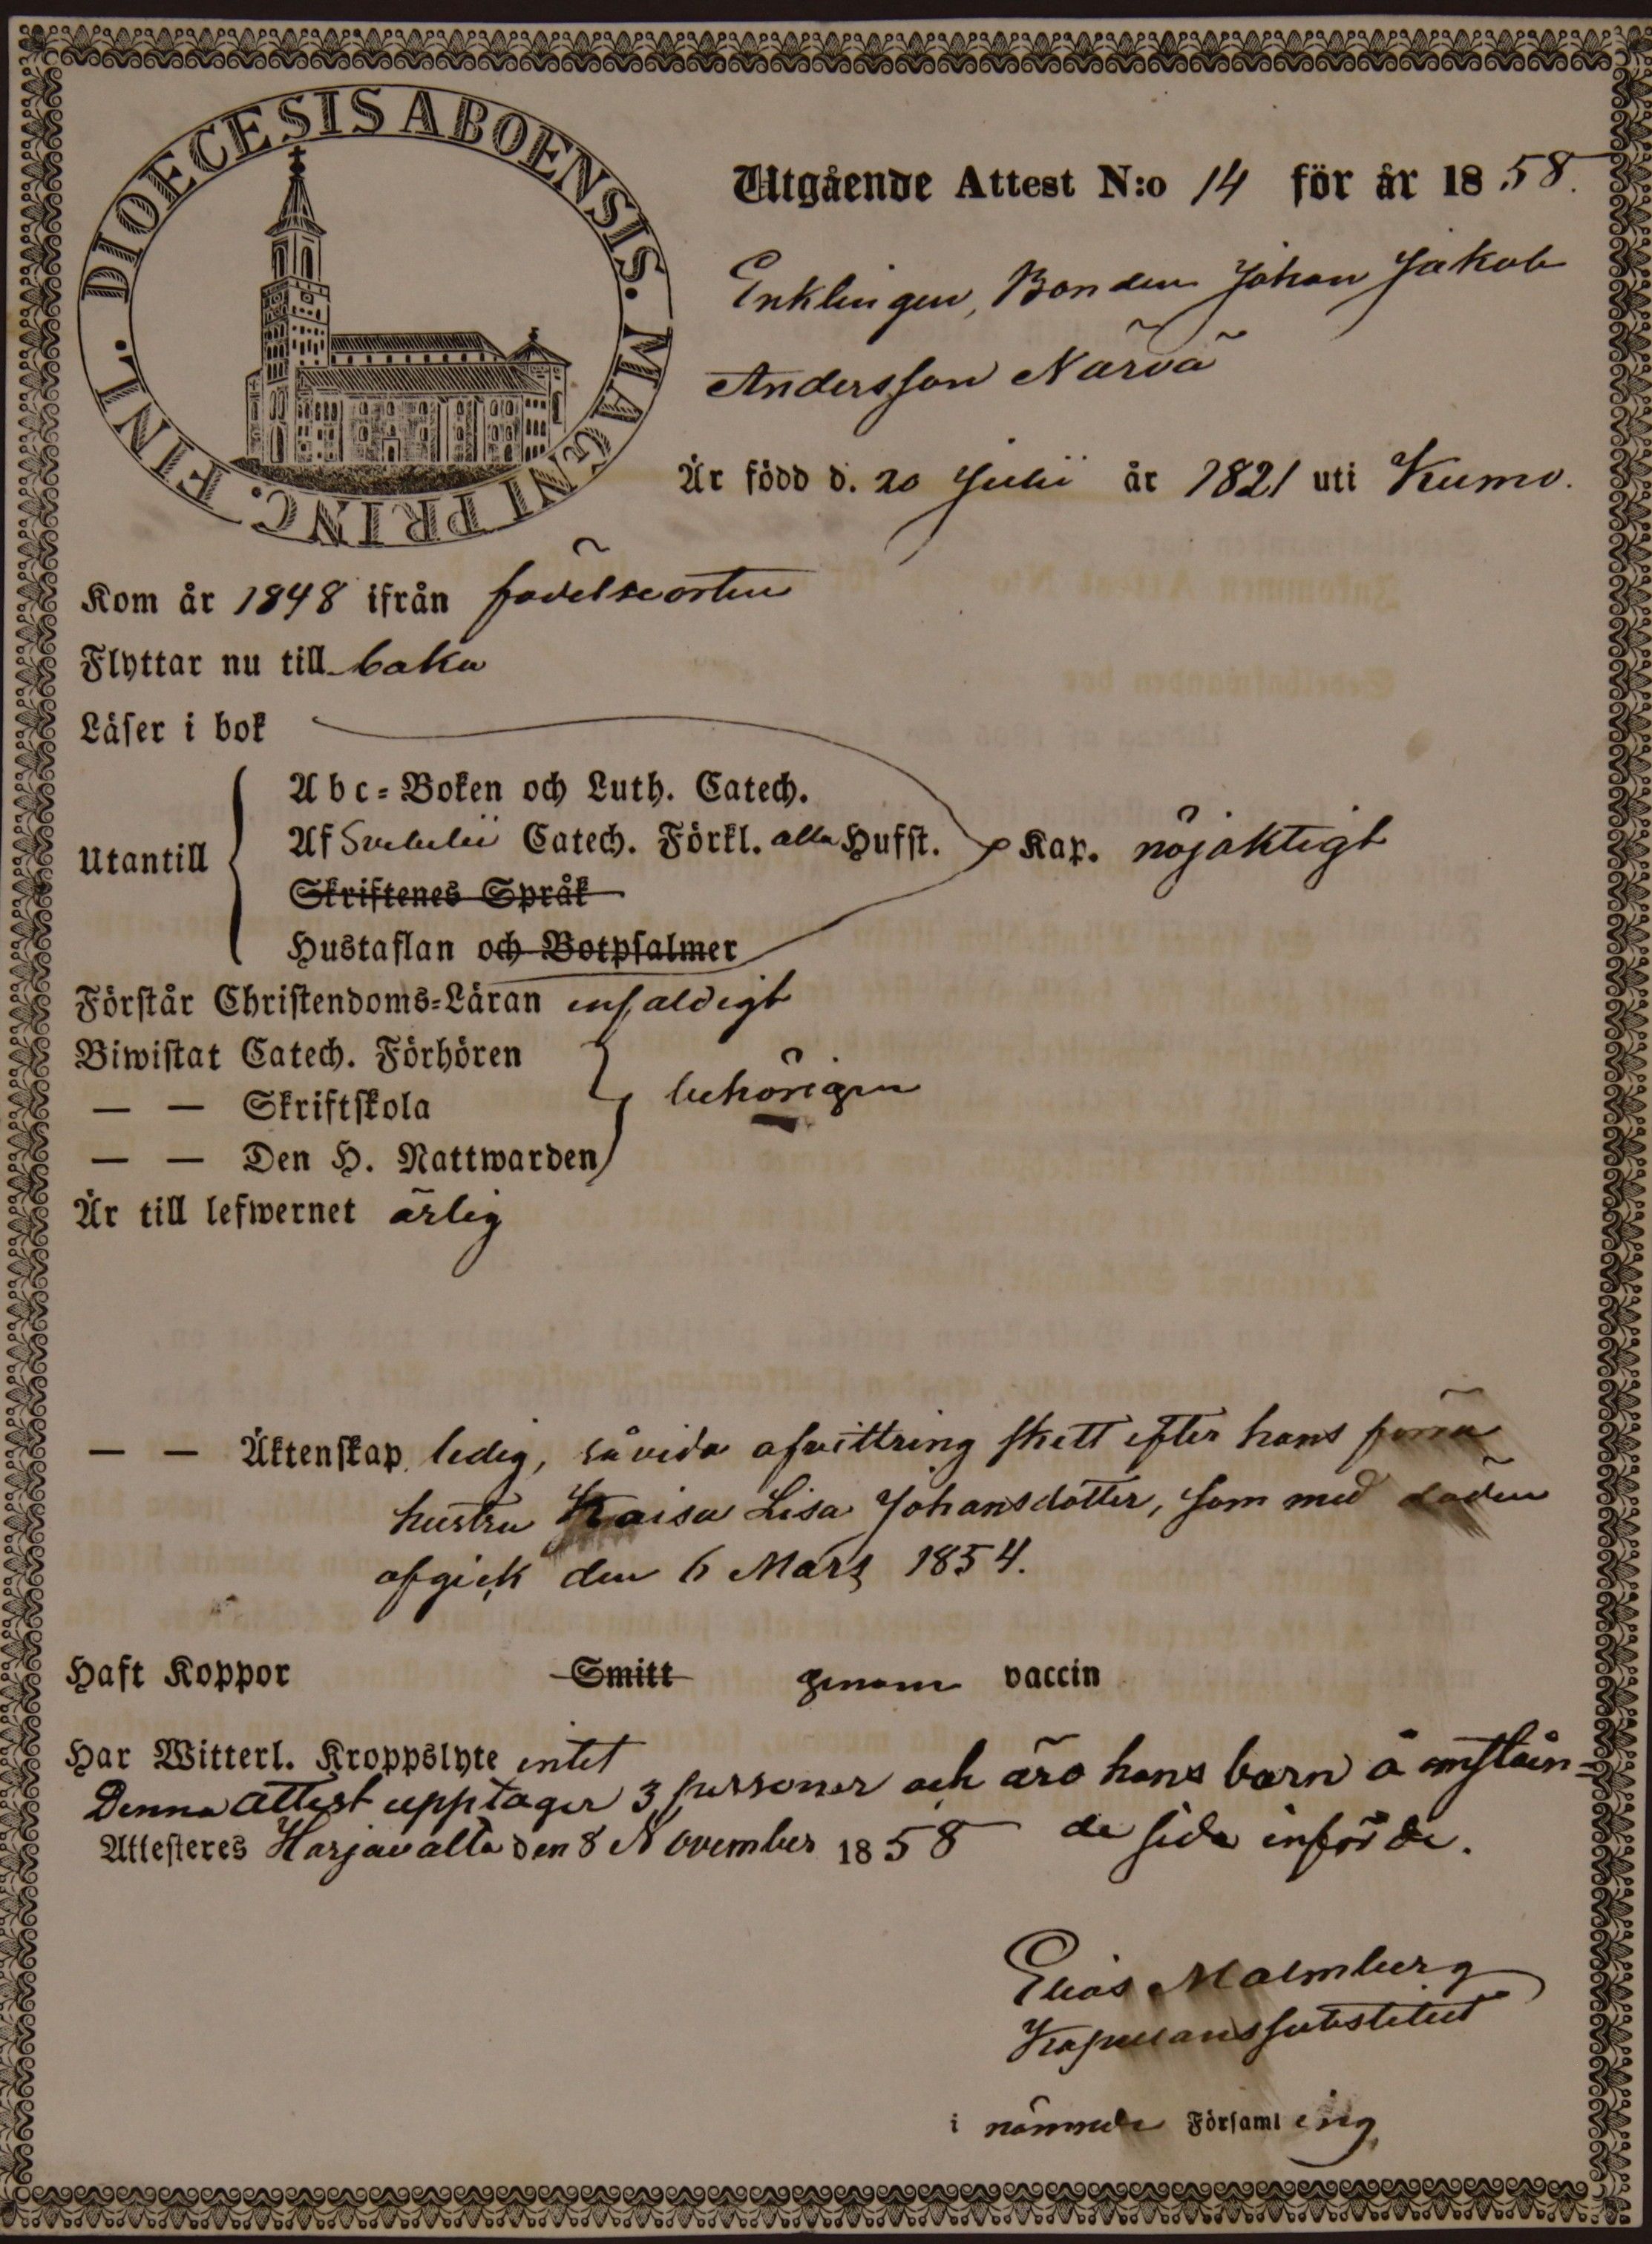 DIOECESIS ABOENSIS. MAGNI PRINC. FINL.
Utgående Attest N:o 14 för år 1858.
Enklingen, Bonden Johan Jakob
Andersson Närvä
Är född d. 20 Julii år 1821 uti Kumo.
Kom år 1848 ifrån födelseorten
Flyttar nu till baka
Läser i bok
Utantill
Abc-Boken och Luth. Catech.
Af Svebelii Catech. Förkl. alla Hufst. Kap. nöjaktigt
Skriftenes Språk
Hustaflan och Botpsalmer
Förstår Christendoms-Läran enfaldigt
Biwistat Catech. Förhören
— — Skriftskola behörigen
— — Den H. Nattwarden
Är till lefwernet ärlig
— — Äktenskap ledig, såvida afvittring skett efter hans förra
hustru Kaisa Lisa Johansdotter, som med döden
afgick den 6 Mars 1854.
Haft Koppor Smitt genom vaccin
Har Witterl. Kroppslyte intet
Denna attest upptager 3 personer och äro hans barn å omstån-
de sida införde.
Attesteres Harjavalta den 8 November 1858
Elias Malmberg
Kapellanssubstitut
i nämnde Församling